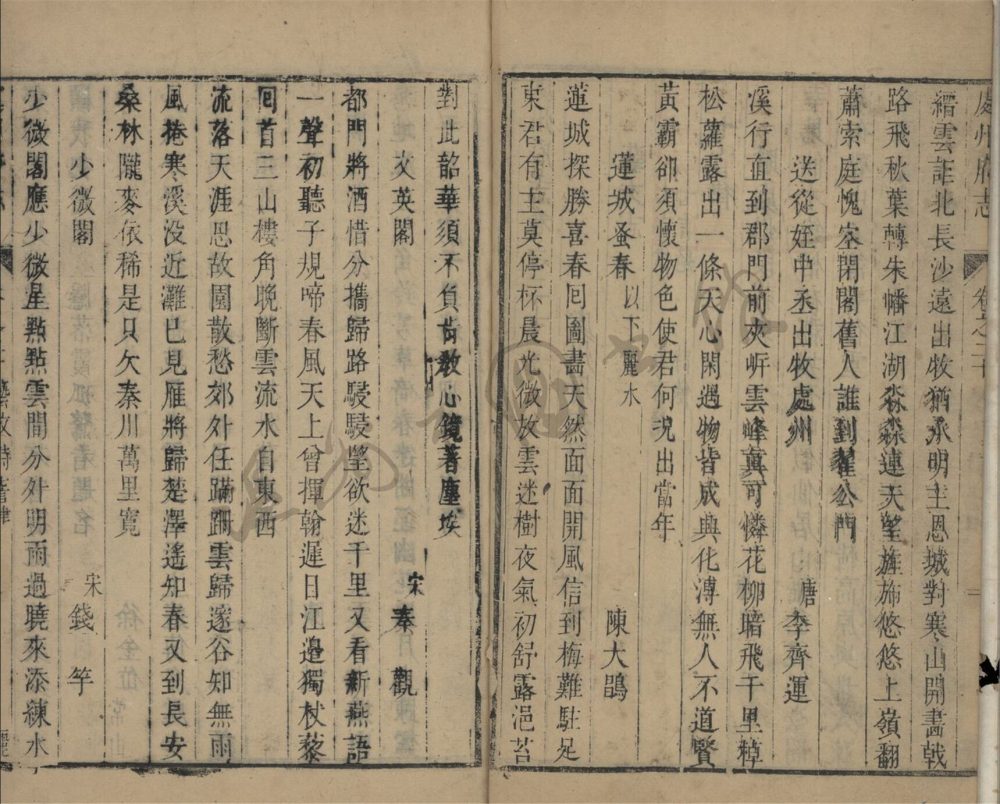 處州府志 卷之二十
縉雲詎北長沙遠出牧猶承明主恩城對寒山開畫戟
路飛秋葉轉朱幡江湖淼淼連天望旌旆悠悠上嶺翻
蕭索庭愧客閉閣舊人誰到翟公門
送從姪中丞出牧處州 唐 李齊運
溪行直到郡門前夾岍雲峰真可憐花柳暗飛千里棹
松蘿露出一條天心閑遇物皆成興化溥無人不道賢
黃霸卻須懷物色使君何况出當年
蓮城蚤春 以下麗水 陳大鵾
蓮城探勝喜春囘圖畫天然面面開風信到梅難駐足
東君有主莫停杯晨光微放雲迷樹夜氣初舒露浥苔
對此韶華須不負肯教心鏡著塵埃
文英閣 宋 秦觀
都門將酒惜分擕歸路駸駸望欲迷千里又看新燕語
一聲初聽子規啼春風天上曾揮翰遲日江邉獨杖藜
囘首三山樓角晚斷雲流水自東西
流落天涯思故園散愁郊外任蹣跚雲歸邃谷知無雨
風捲寒溪没近灘已見雁將歸楚澤遙知春又到長安
桑林隴麥依稀是只欠秦川萬里寬
少微閣 宋 錢竽
少微閣應少微星點點雲間分外明雨過曉來添練水